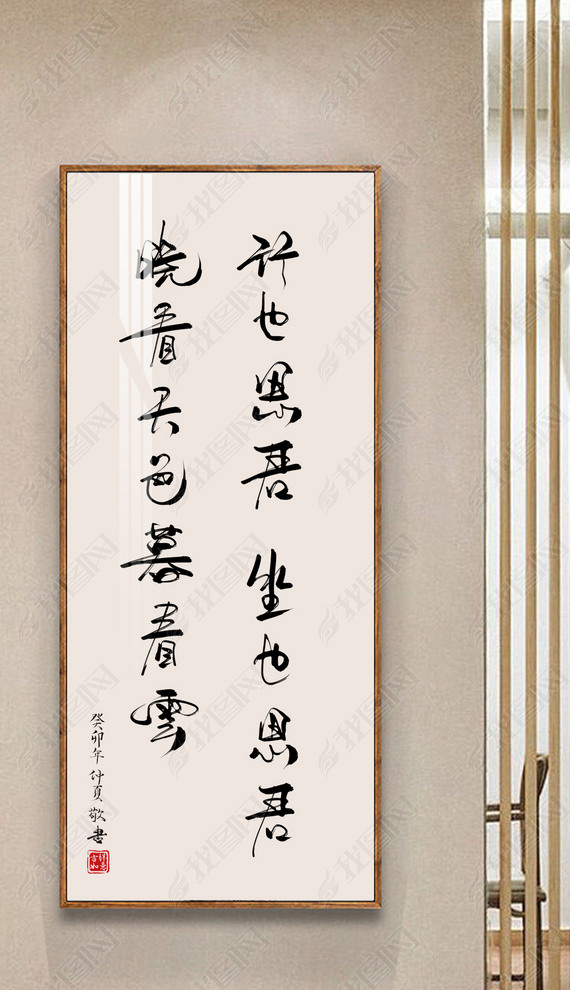 行也思君 坐也思君
晓看天色暮看雲
癸卯年仲夏敬書
我图网